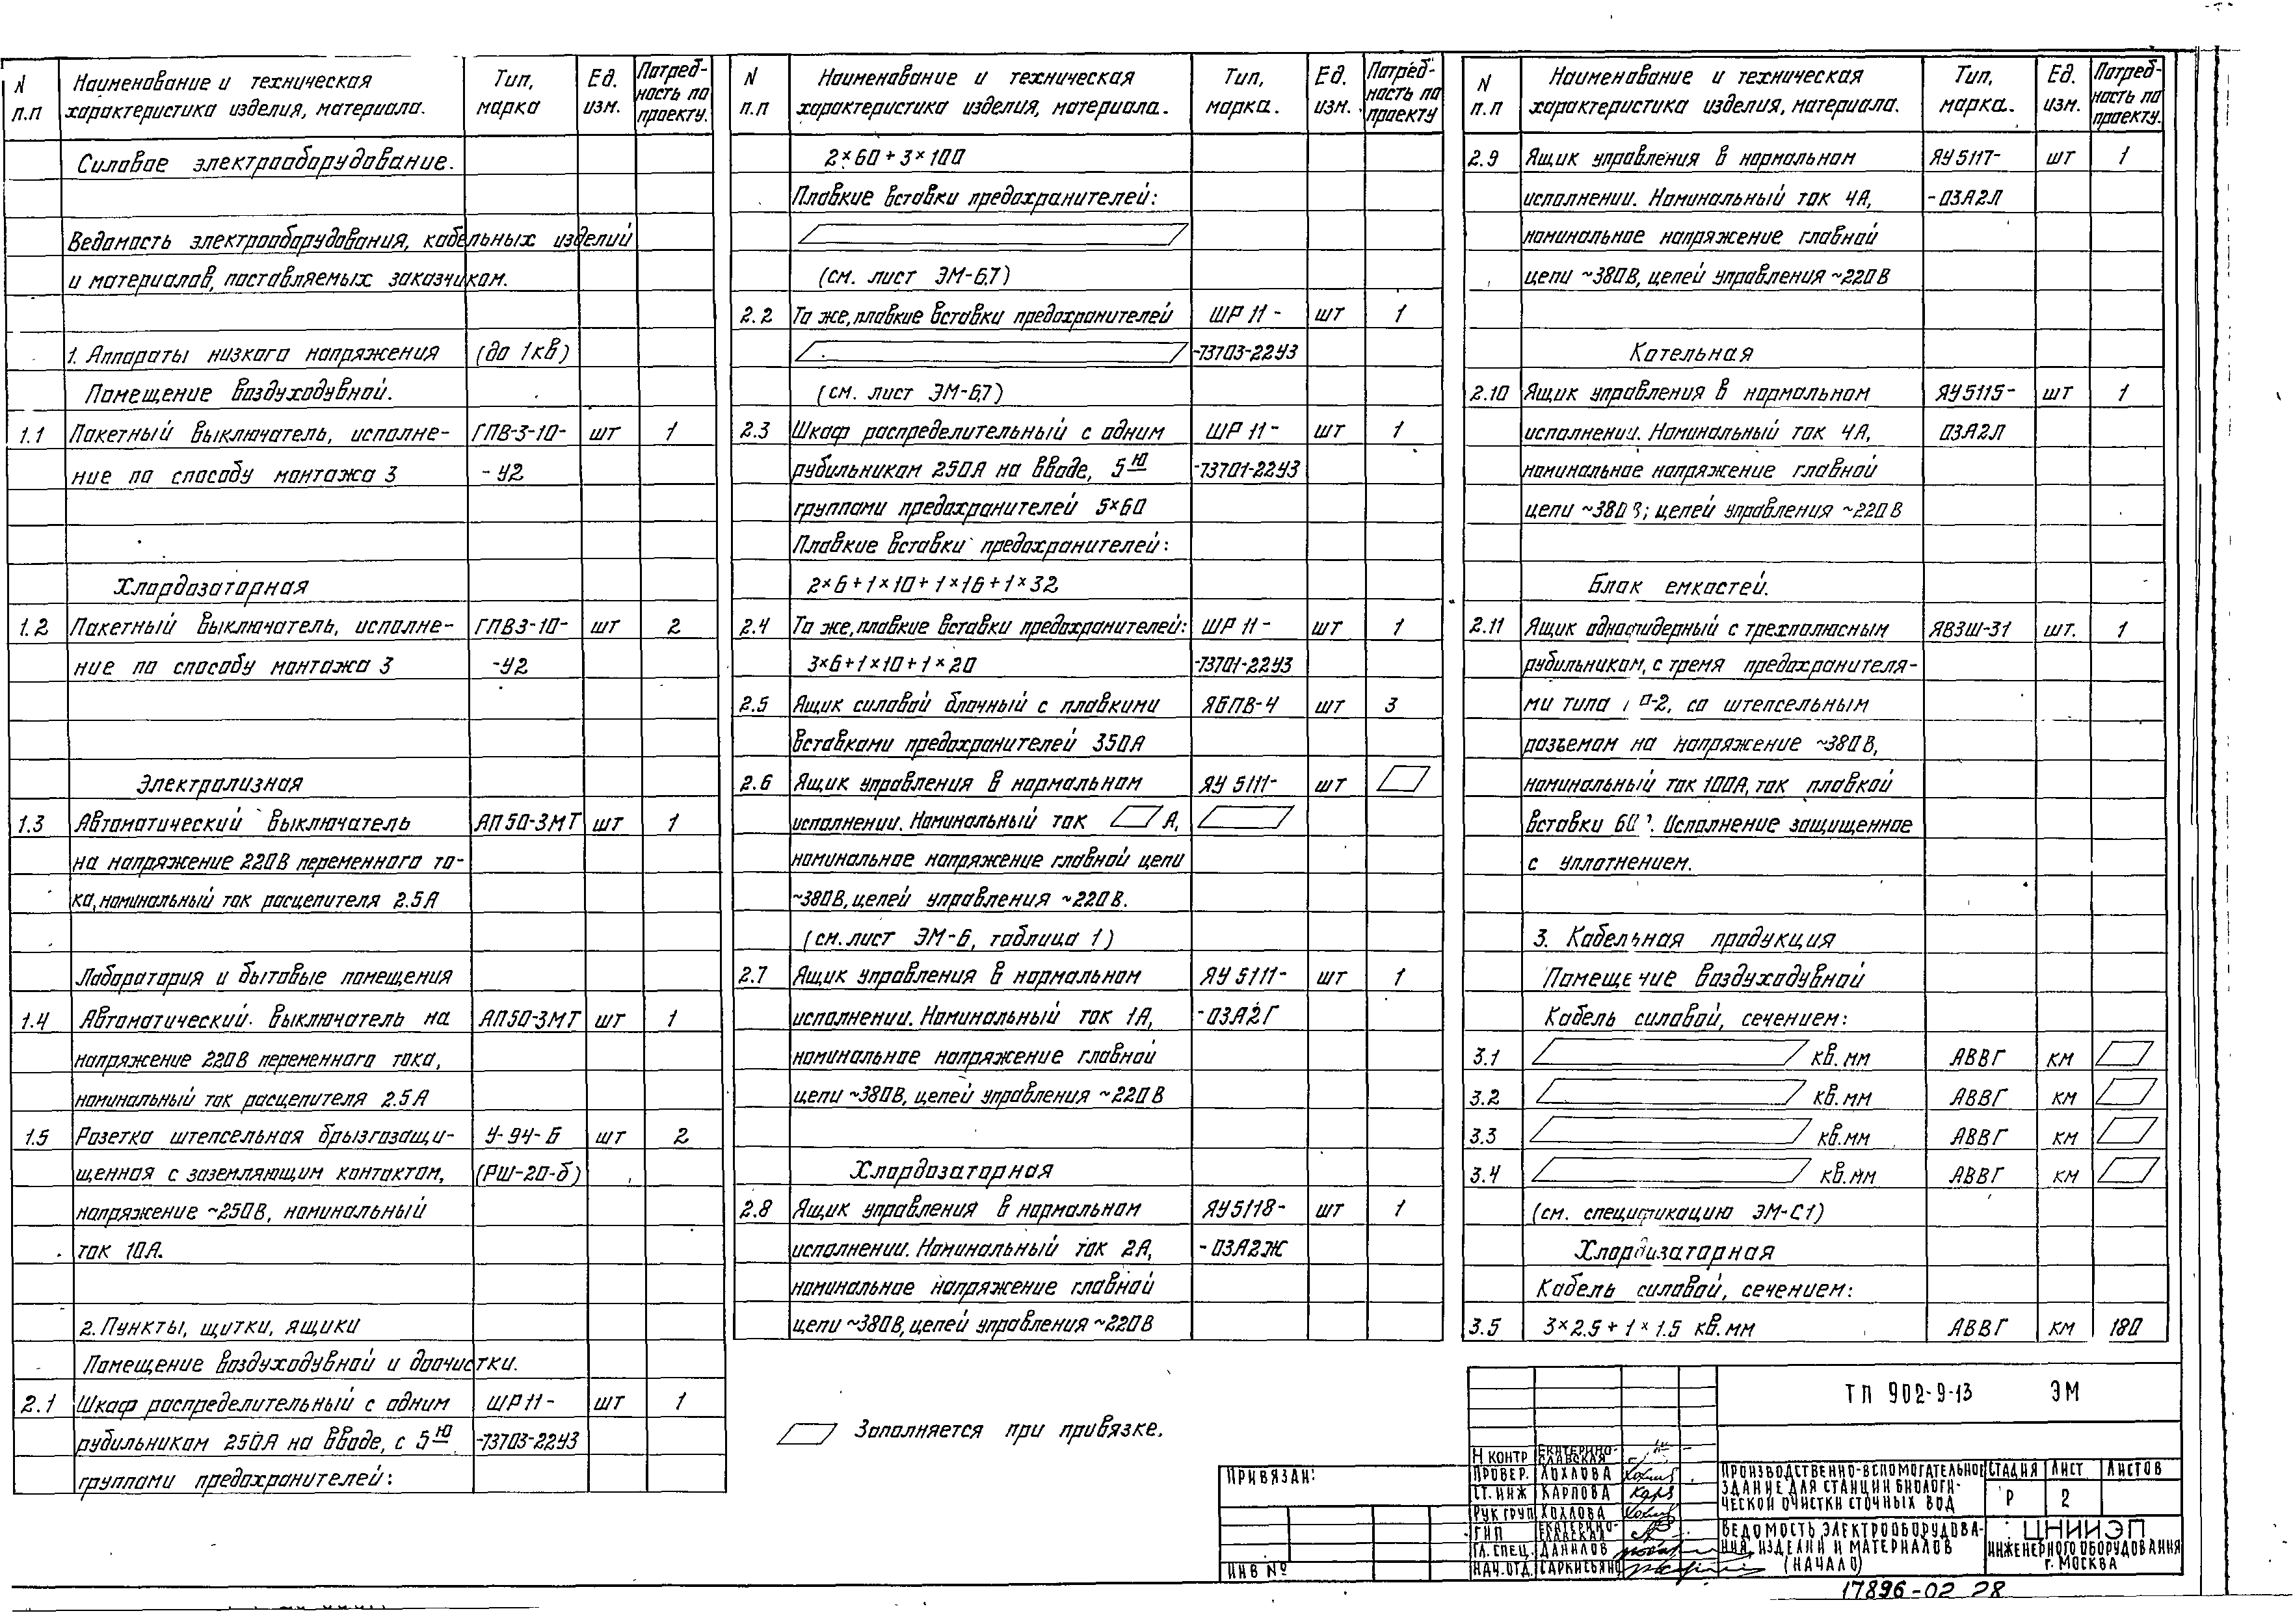 N п.п Наименование и техническая характеристика изделия, материала. Тип, марка Ед. изм. Потребность по проекту.
Силовое электрооборудование.
Ведомость электрооборудования, кабельных изделий
и материалов, поставляемых заказчиком.
1. Аппараты низкого напряжения (до 1кв)
Помещение воздуходувной.
1.1 Пакетный выключатель, исполне- ГПВ-3-10- шт 1
ние по способу монтажа 3 -У2
Хлордозаторная
1.2 Пакетный выключатель, исполне- ГПВ3-10- шт 2
ние по способу монтажа 3 -У2
Электролизная
1.3 Автоматический выключатель АП50-3МТ шт 1
на напряжение 220В переменного то-
ка, номинальный ток расцепителя 2.5А
Лаборатория и бытовые помещения
1.4 Автоматический выключатель на АП50-3МТ шт 1
напряжение 220В переменного тока,
номинальный ток расцепителя 2.5А
1.5 Розетка штепсельная брызгозащи- У-94-Б шт 2
щенная с заземляющим контактом, (РШ-20-б)
напряжение ~250В, номинальный
ток 10А.
2. Пункты, щитки, ящики
Помещение воздуходувной и доочистки.
2.1 Шкаф распределительный с одним ШР11- шт 1
рубильником 250А на вводе, с 5ю -73703-22У3
группами предохранителей:
N п.п Наименование и техническая характеристика изделия, материала. Тип, марка. Ед. изм. Потребность по проекту
2×60+3×100
Плавкие вставки предохранителей:
(см. лист ЭМ-6,7)
2.2 То же, плавкие вставки предохранителей ШР11- шт 1
-73703-22У3
(см. лист ЭМ-6,7)
2.3 Шкаф распределительный с одним ШР11- шт 1
рубильником 250А на вводе, 5ю -73701-22У3
группами предохранителей 5×60
Плавкие вставки предохранителей:
2×6+1×10+1×16+1×32
2.4 То же, плавкие вставки предохранителей: ШР11- шт 1
3×6+1×10+1×20 -73701-22У3
2.5 Ящик силовой блочный с плавкими ЯБПВ-4 шт 3
вставками предохранителей 350А
2.6 Ящик управления в нормальном ЯУ5111- шт
исполнении. Номинальный ток А,
номинальное напряжение главной цепи
~380В, цепей управления ~220В.
(см. лист ЭМ-6, таблица 1)
2.7 Ящик управления в нормальном ЯУ5111- шт 1
исполнении. Номинальный ток 1А, -03А2Г
номинальное напряжение главной
цепи ~380В, цепей управления ~220В
Хлордозаторная
2.8 Ящик управления в нормальном ЯУ5118- шт 1
исполнении. Номинальный ток 2А, -03А2Ж
номинальное напряжение главной
цепи ~380В, цепей управления ~220В
N п.п Наименование и техническая характеристика изделия, материала. Тип, марка. Ед. изм. Потребность по проекту.
2.9 Ящик управления в нормальном ЯУ5117- шт 1
исполнении. Номинальный ток 4А, -03А2Л
номинальное напряжение главной
цепи ~380В, цепей управления ~220В
Котельная
2.10 Ящик управления в нормальном ЯУ5115- шт 1
исполнении. Номинальный ток 4А, 03А2Л
номинальное напряжение главной
цепи ~380В; цепей управления ~220В
Блок емкостей.
2.11 Ящик однофидерный с трехполюсным ЯВЗШ-31 шт. 1
рубильником, с тремя предохранителя-
ми типа П-2, со штепсельным
разъемом на напряжение ~380В,
номинальный ток 100А, ток плавкой
вставки 60. Исполнение защищенное
с уплотнением.
3. Кабельная продукция
Помещение воздуходувной
Кабель силовой, сечением:
3.1 кв.мм АВВГ км
3.2 кв.мм АВВГ км
3.3 кв.мм АВВГ км
3.4 кв.мм АВВГ км
(см. спецификацию ЭМ-С1)
Хлордизаторная
Кабель силовой, сечением:
3.5 3×2.5+1×1.5 кв.мм АВВГ км 180
Заполняется при привязке.
Привязан:
Инв №
ТП 902-9-13 ЭМ
Н контр Екатерино-славская
Провер. Хохлова
Ст. инж Карпова
Рук груп Хохлова
ГИП Екатерино-славская
Гл. спец. Данилов
Нач. отд. Саркисьянц
Производственно-вспомогательное
здание для станции биологи-
ческой очистки сточных вод
Стадия Лист Листов
Р 2
Ведомость электрооборудова-
ния, изделий и материалов
(начало)
ЦНИИЭП
инженерного оборудования
г. Москва
17896-02 28